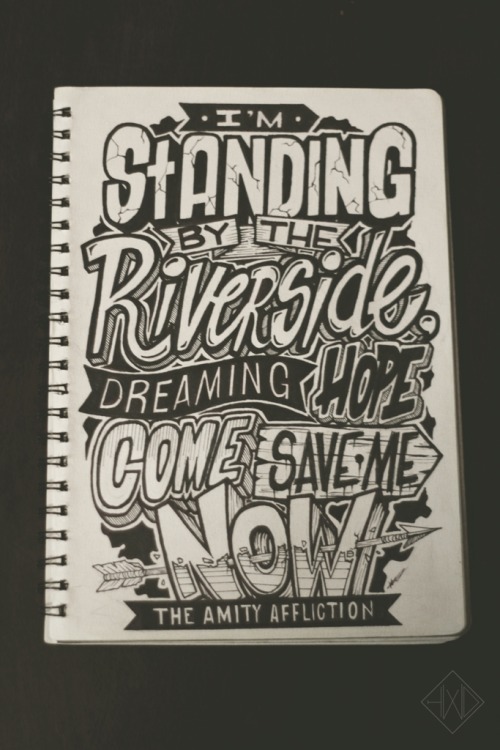 · I'M ·
StANDING
BY THE
Riverside,
DREAMING HOPE
COME SAVE·ME
NOW
THE AMITY AFFLICTION